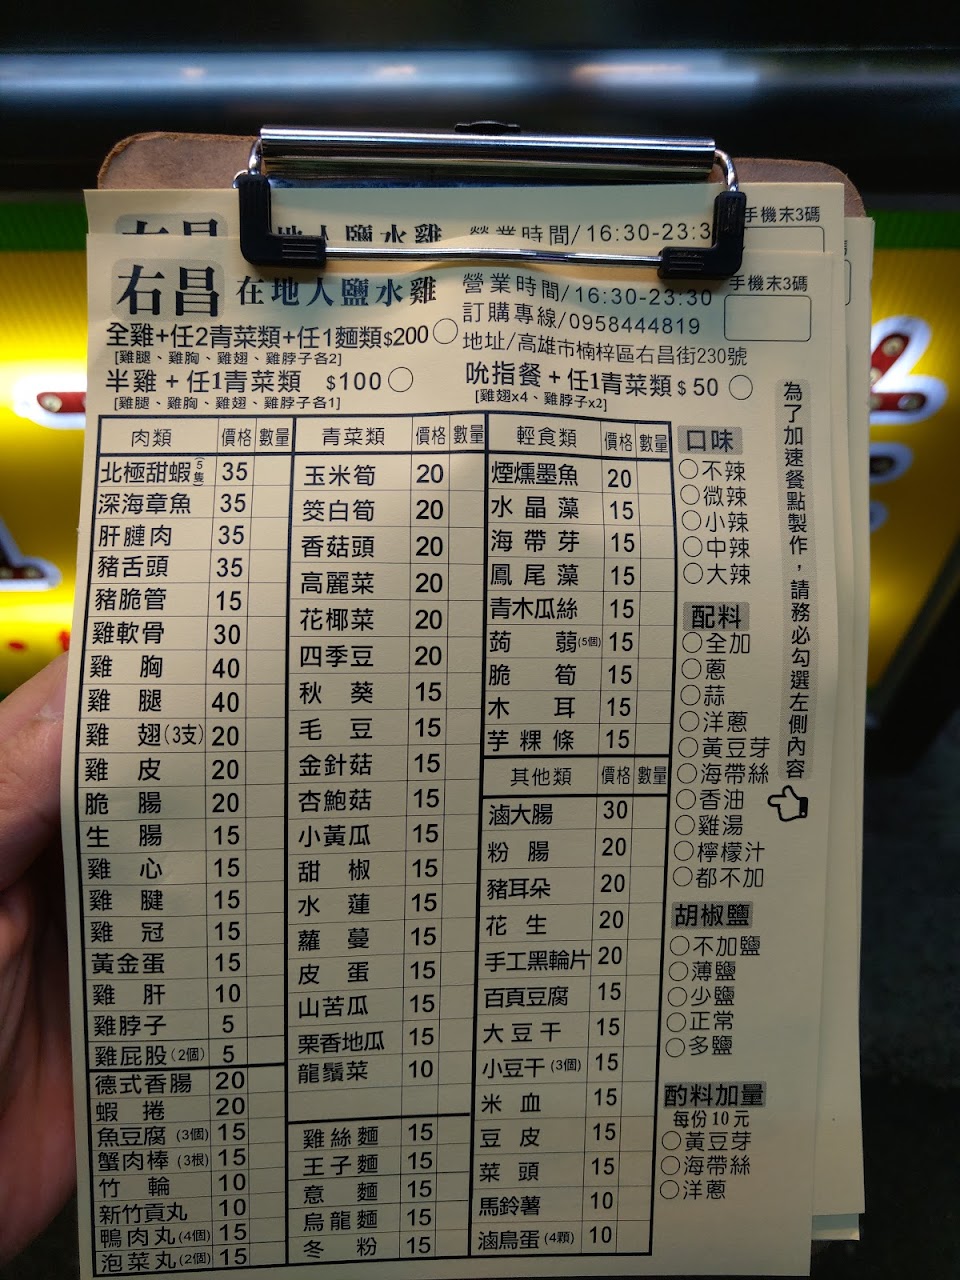 手機末3碼
營業時間/16:30-23:3
右昌 在地人鹽水雞
營業時間/16:30-23:30
手機末3碼
訂購專線/0958444819
地址/高雄市楠梓區右昌街230號
全雞+任2青菜類+任1麵類$200
[雞腿、雞胸、雞翅、雞脖子各2]
半雞+任1青菜類 $100
[雞腿、雞胸、雞翅、雞脖子各1]
吮指餐+任1青菜類$50
[雞翅x4、雞脖子x2]
肉類 價格 數量
北極甜蝦(5隻) 35
深海章魚 35
肝腱肉 35
豬舌頭 35
豬脆管 15
雞軟骨 30
雞胸 40
雞腿 40
雞翅(3支) 20
雞皮 20
脆腸 20
生腸 15
雞心 15
雞腱 15
雞冠 15
黃金蛋 15
雞肝 10
雞脖子 5
雞屁股(2個) 5
德式香腸 20
蝦捲 20
魚豆腐(3個) 15
蟹肉棒(3根) 15
竹輪 10
新竹貢丸 10
鴨肉丸(4個) 15
泡菜丸(2個) 15
青菜類 價格 數量
玉米筍 20
筊白筍 20
香菇頭 20
高麗菜 20
花椰菜 20
四季豆 20
秋葵 15
毛豆 15
金針菇 15
杏鮑菇 15
小黃瓜 15
甜椒 15
水蓮 15
蘿蔓 15
皮蛋 15
山苦瓜 15
栗香地瓜 15
龍鬚菜 10
雞絲麵 15
王子麵 15
意麵 15
烏龍麵 15
冬粉 15
輕食類 價格 數量
煙燻墨魚 20
水晶藻 15
海帶芽 15
鳳尾藻 15
青木瓜絲 15
蒟蒻(5個) 15
脆筍 15
木耳 15
芋粿條 15
其他類 價格 數量
滷大腸 30
粉腸 20
豬耳朵 20
花生 20
手工黑輪片 20
百頁豆腐 15
大豆干 15
小豆干(3個) 15
米血 15
豆皮 15
菜頭 15
馬鈴薯 10
滷鳥蛋(4顆) 10
口味
不辣
微辣
小辣
中辣
大辣
配料
全加
蔥
蒜
洋蔥
黃豆芽
海帶絲
香油
雞湯
檸檬汁
都不加
胡椒鹽
不加鹽
薄鹽
少鹽
正常
多鹽
酌料加量
每份10元
黃豆芽
海帶絲
洋蔥
為了加速餐點製作，請務必勾選左側內容